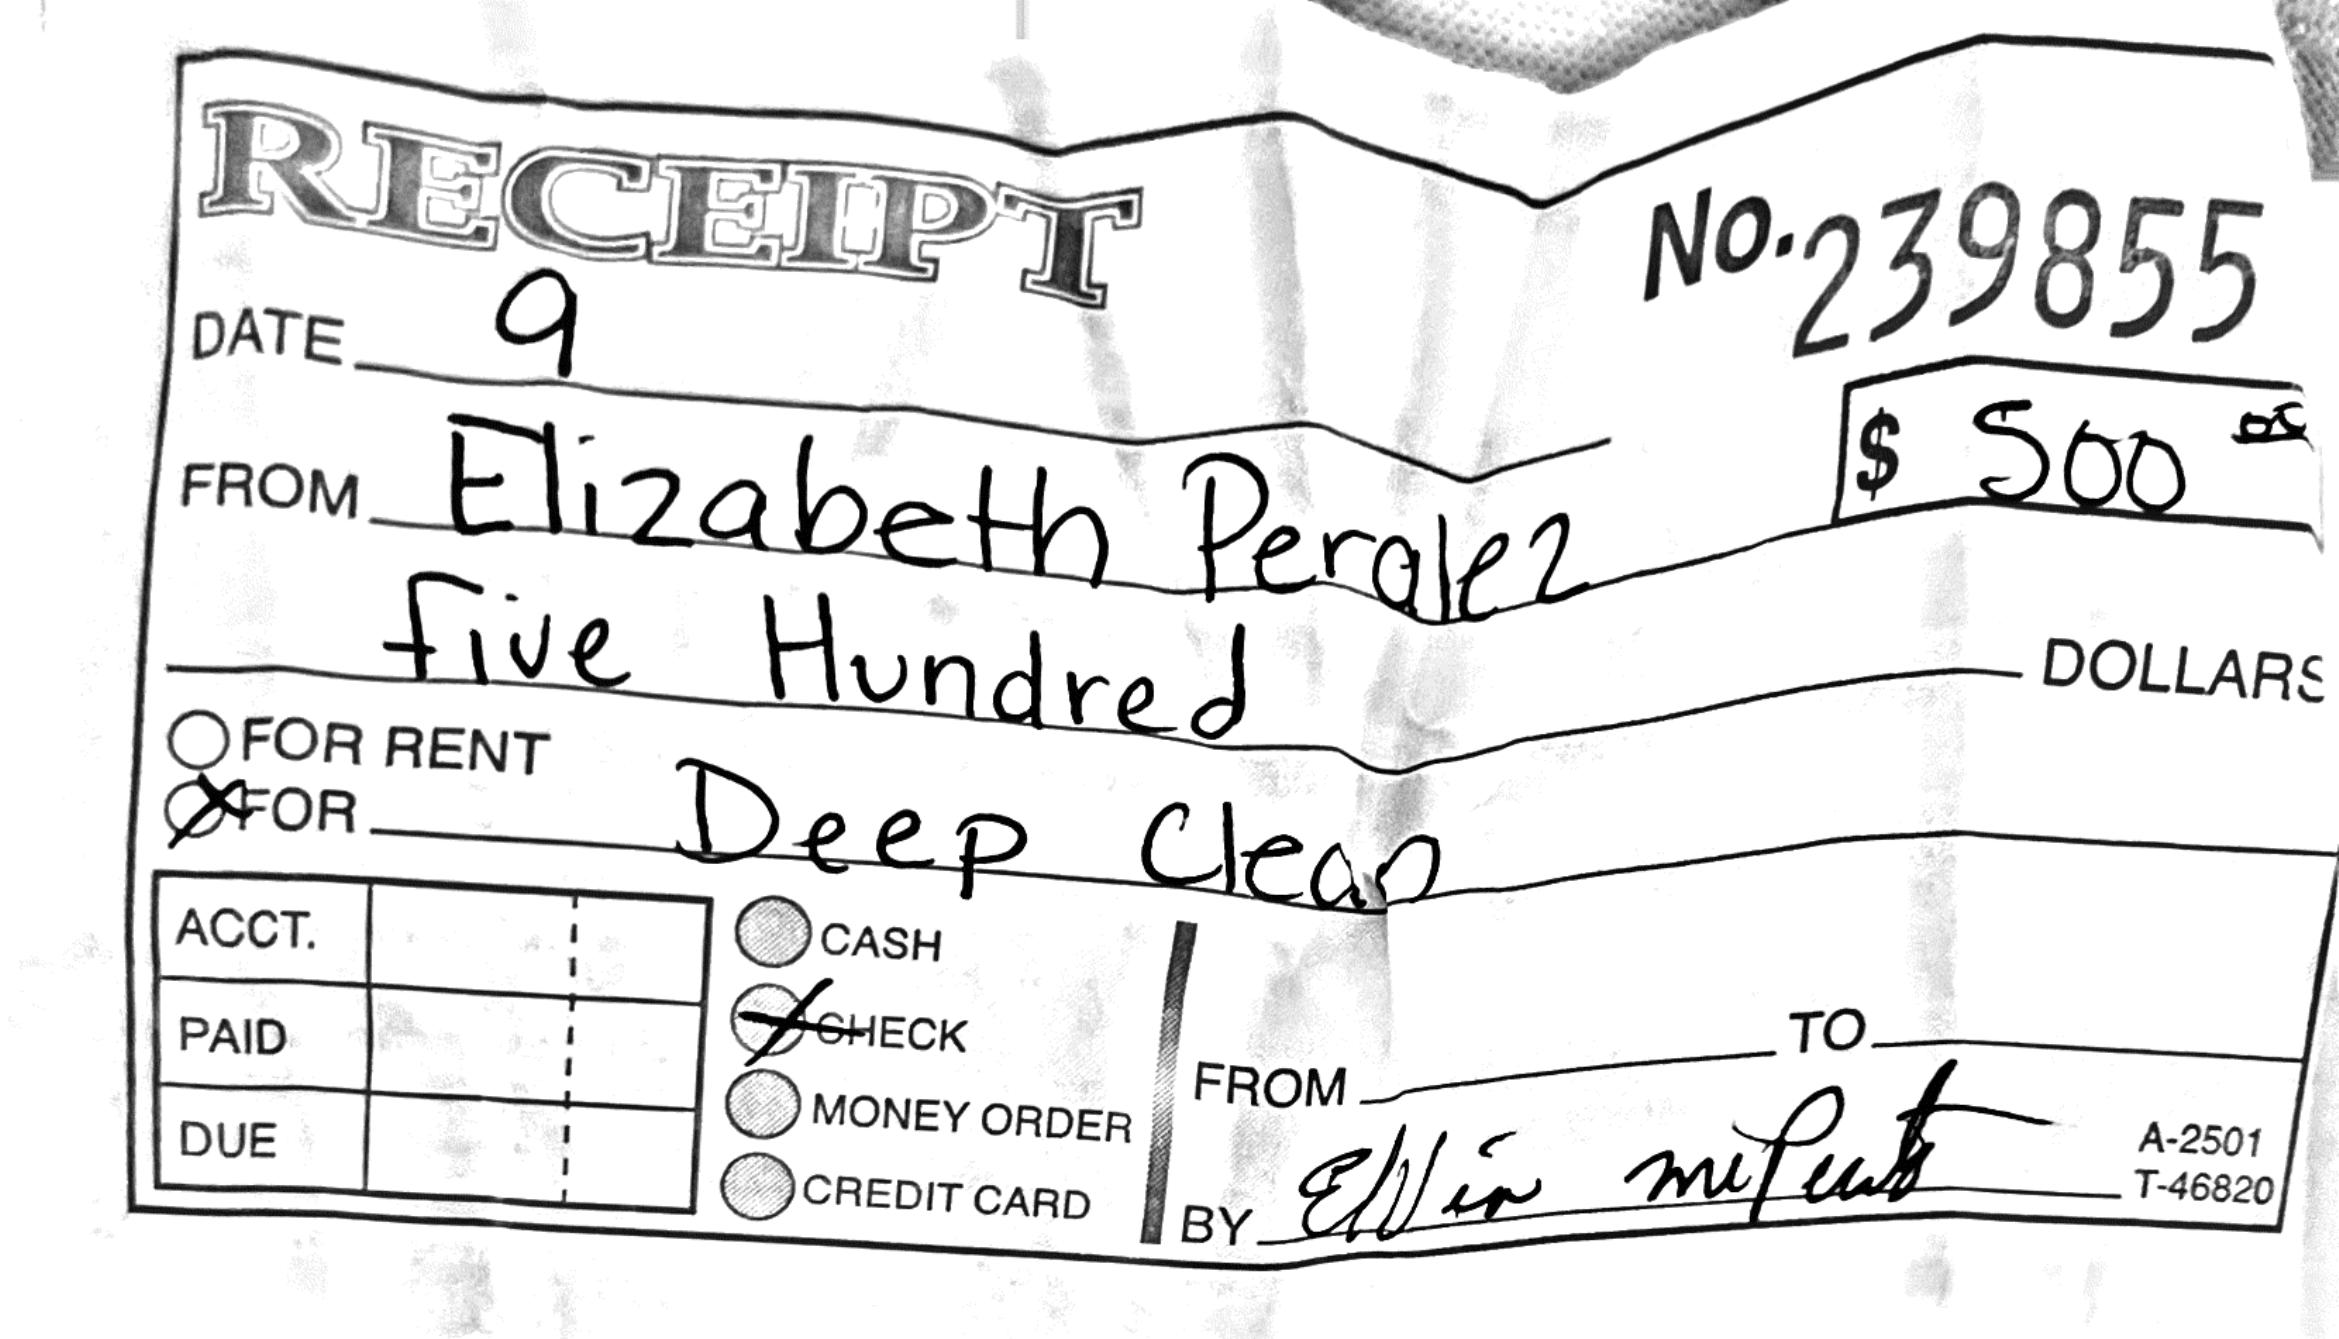 RECEIPT
No. 239855
DATE 9
$ 500 00
FROM Elizabeth Peralez
Five Hundred DOLLARS
FOR RENT
FOR Deep Clean
ACCT.
PAID
DUE
CASH
CHECK
MONEY ORDER
CREDIT CARD
FROM TO
BY
A-2501
T-46820